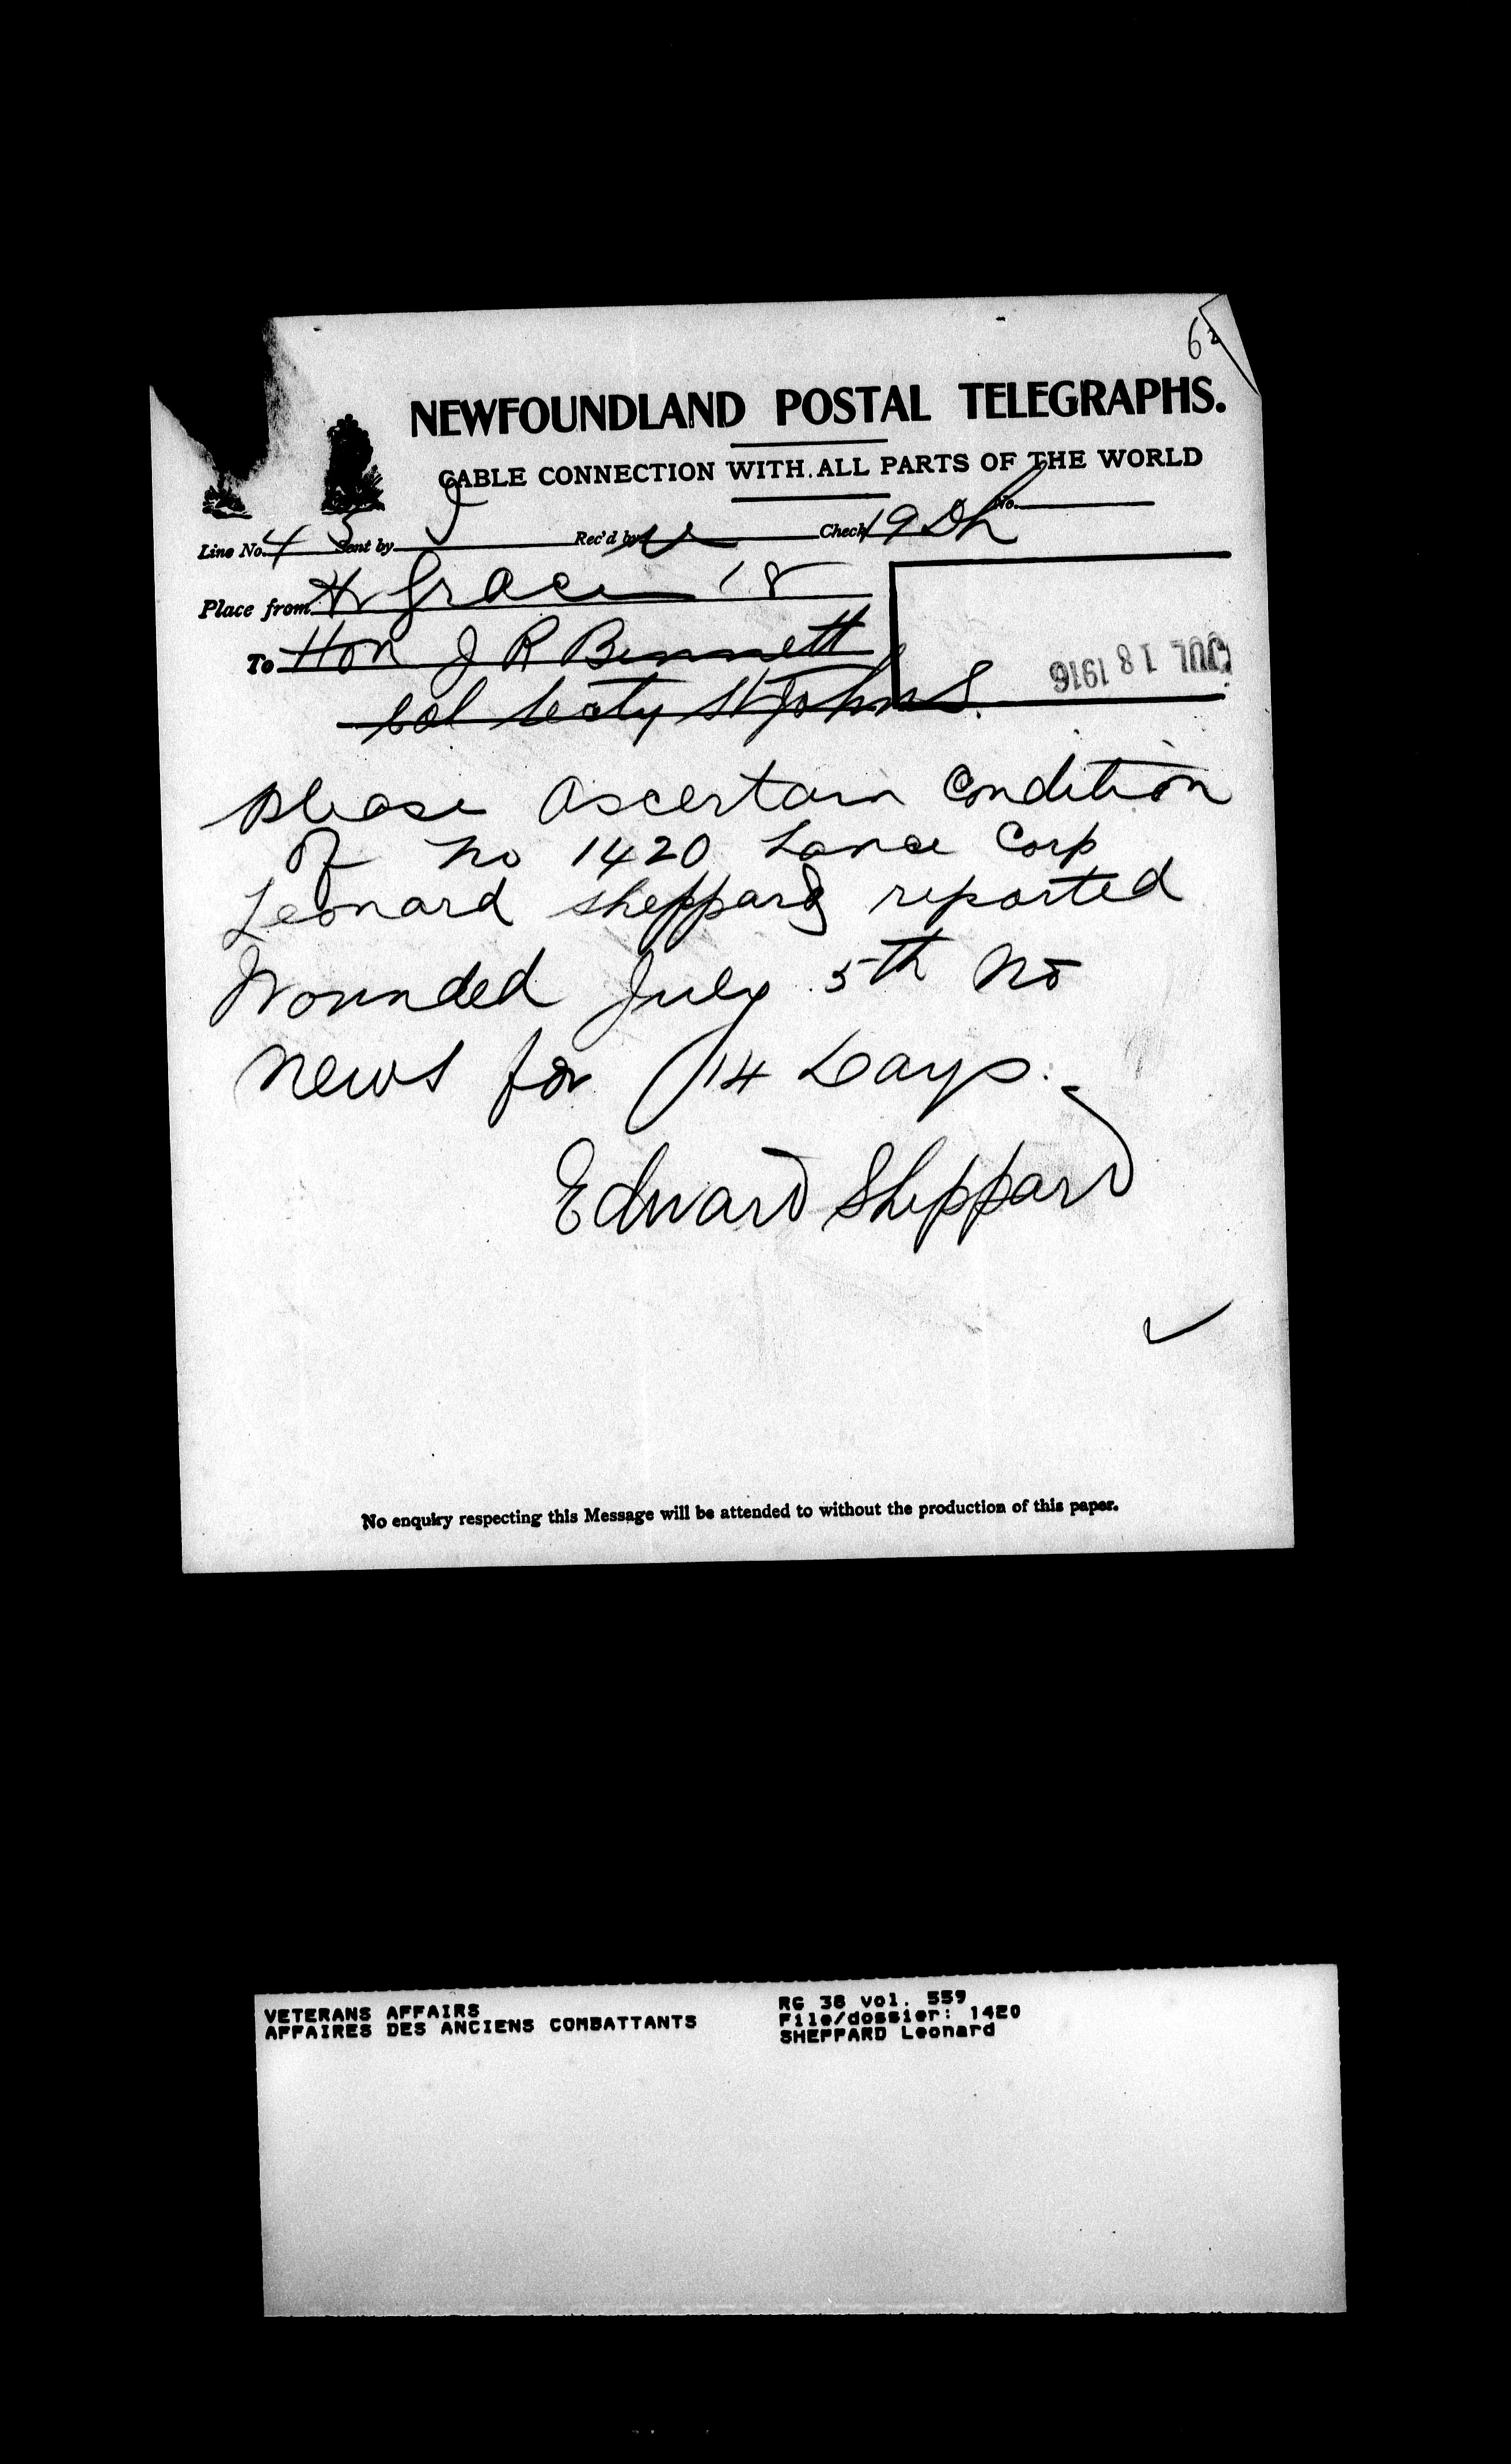 NEWFOUNDLAND POSTAL TELEGRAPHS.
CABLE CONNECTION WITH ALL PARTS OF THE WORLD
Line No. 4 Sent by Rec'd by Check 19 Dh No.
Place from Hr Grace 18
To Hon J R Bennett
Col Secty St Johns.
JUL 18 1916
please ascertain Condition
of no 1420 Lance Corp
Leonard Sheppard reported
Wounded July 5th No
news for 14 Days.
Edward Sheppard
No enquiry respecting this Message will be attended to without the production of this paper.
VETERANS AFFAIRS
AFFAIRES DES ANCIENS COMBATTANTS
RG 38 vol. 559
File/dossier: 1420
SHEPPARD Leonard